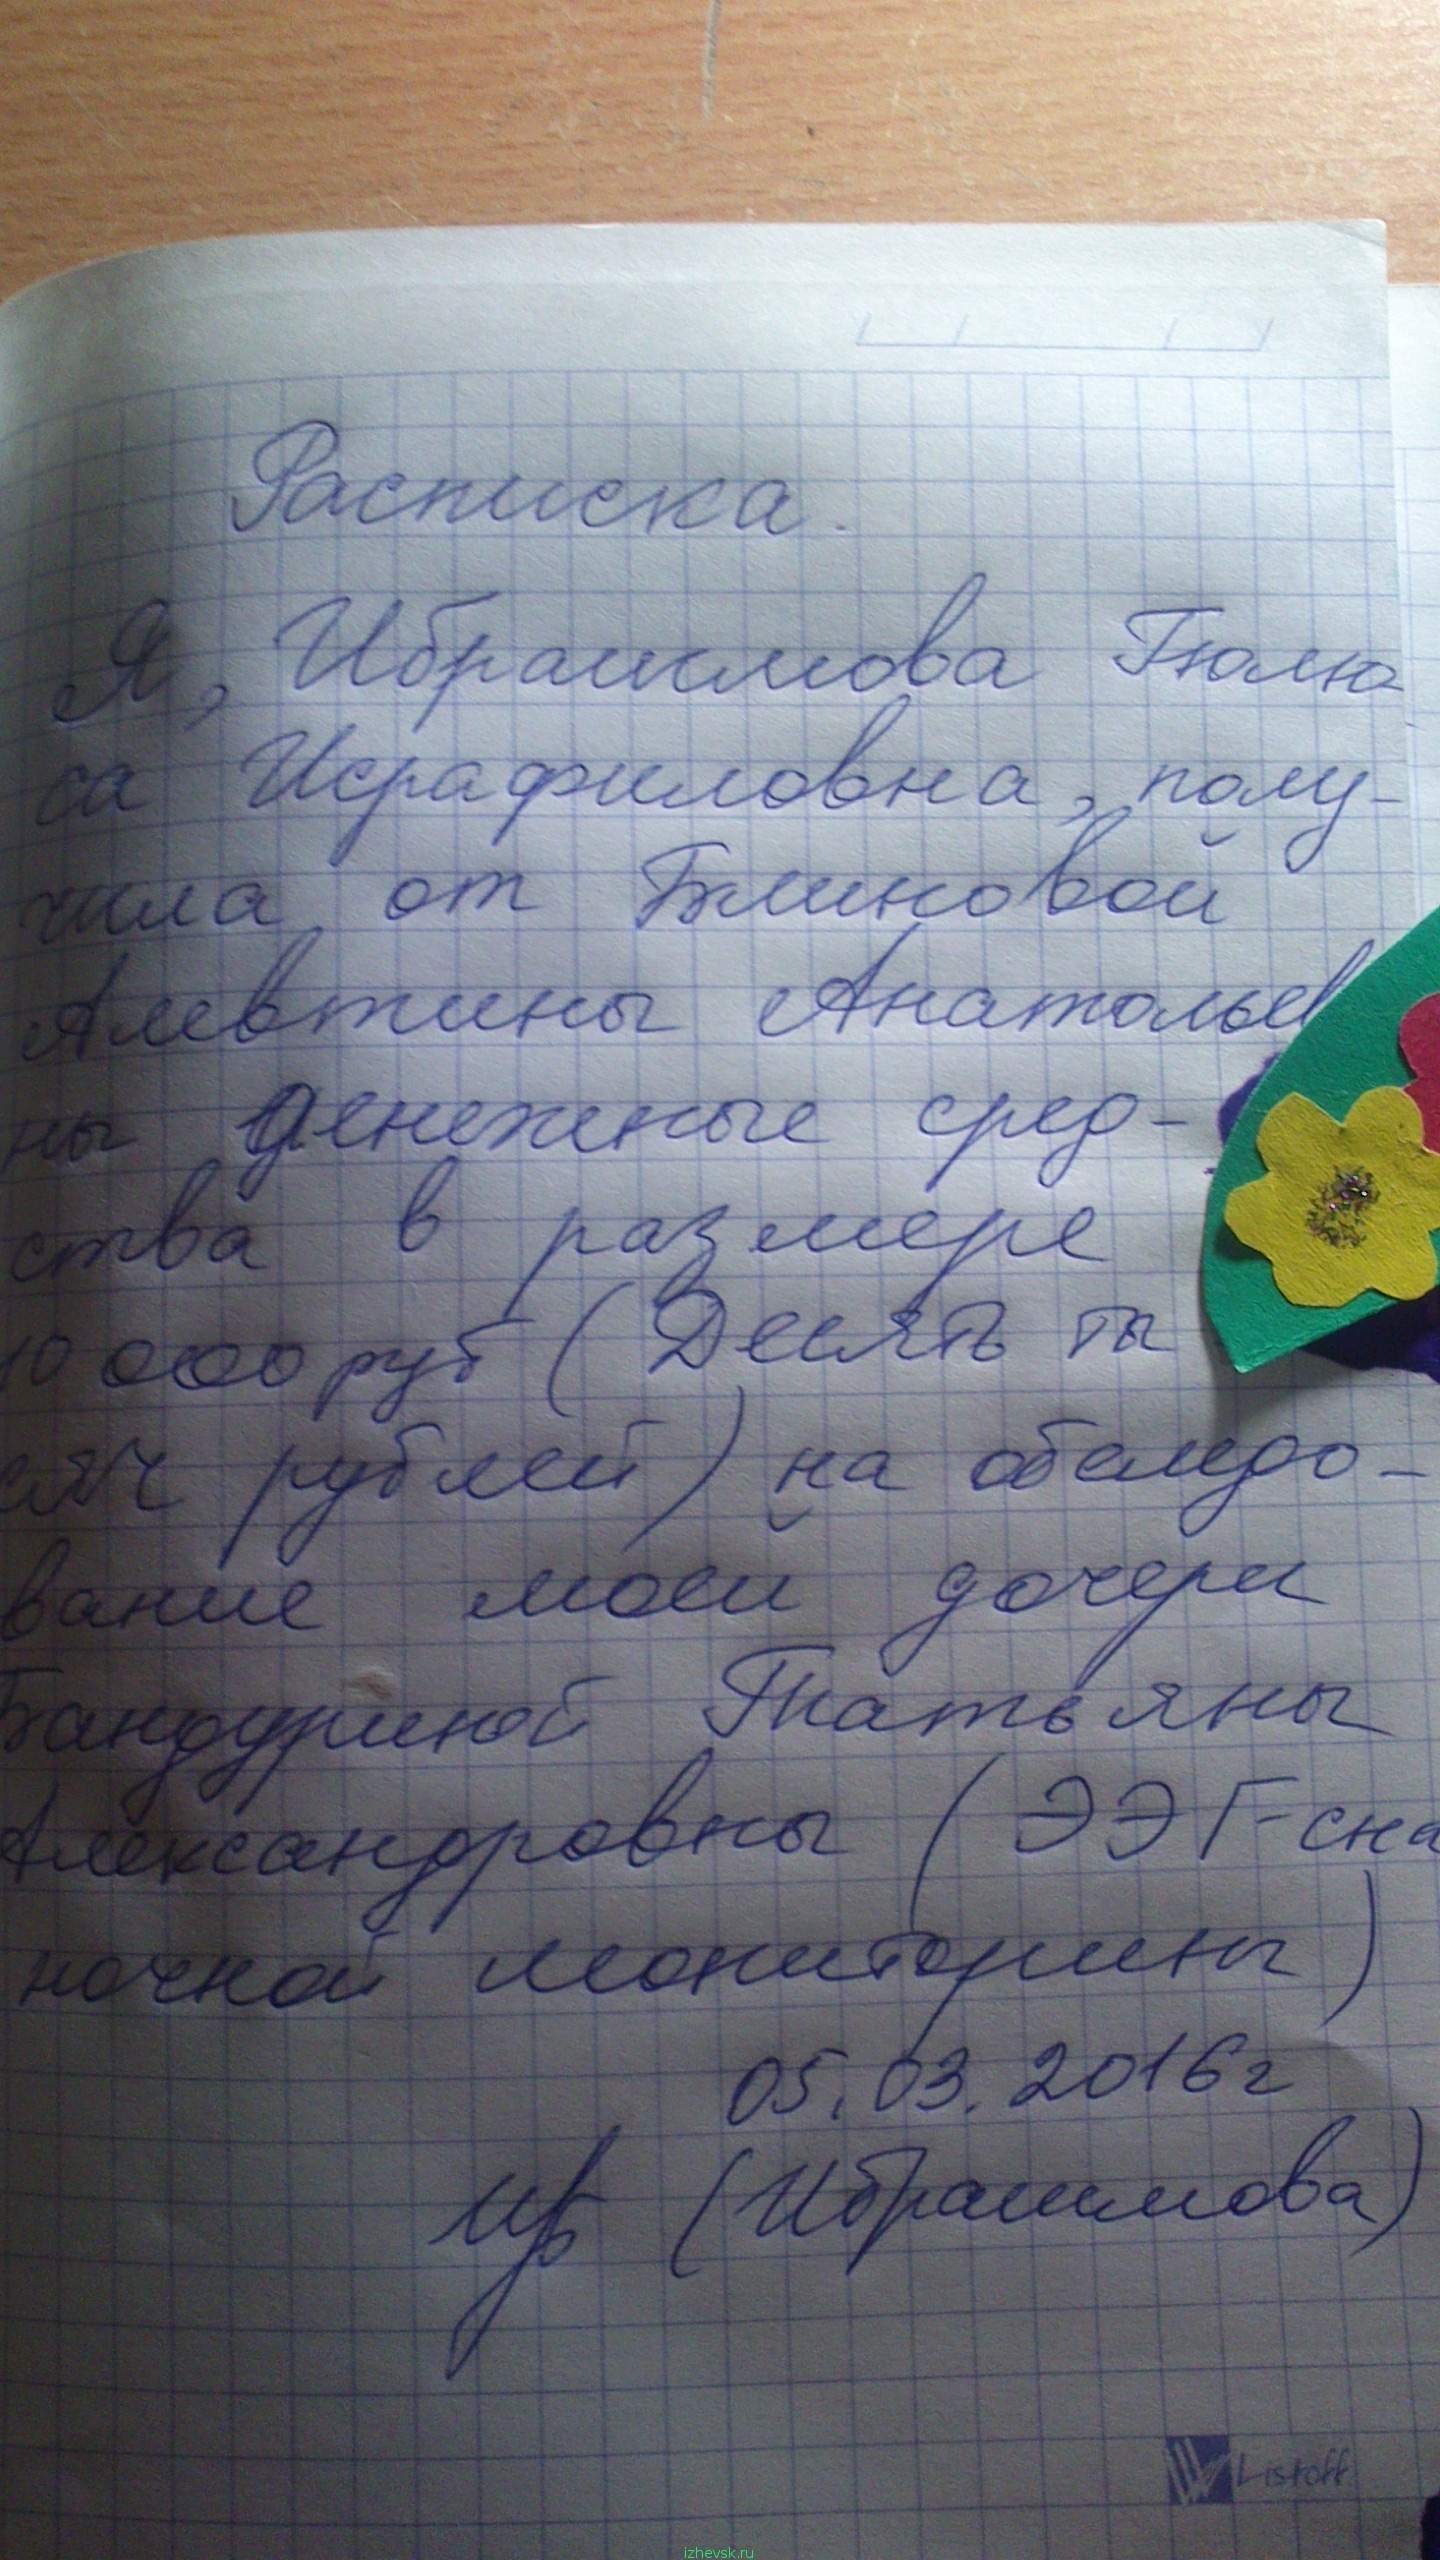 Расписка.
Я, Ибраимова Гюлю-
са Исрафиловна, полу-
чила от Блиновой
Алевтины Анатольев
ны денежные сред-
ства в размере
10 000 руб (Десять ты
сяч рублей) на обследо-
вание моей дочери
Бандуриной Татьяны
Александровны (ЭЭГ-сна
ночной мониторины)
05.03.2016г
(Ибраимова)
Listoff
izhevsk.ru